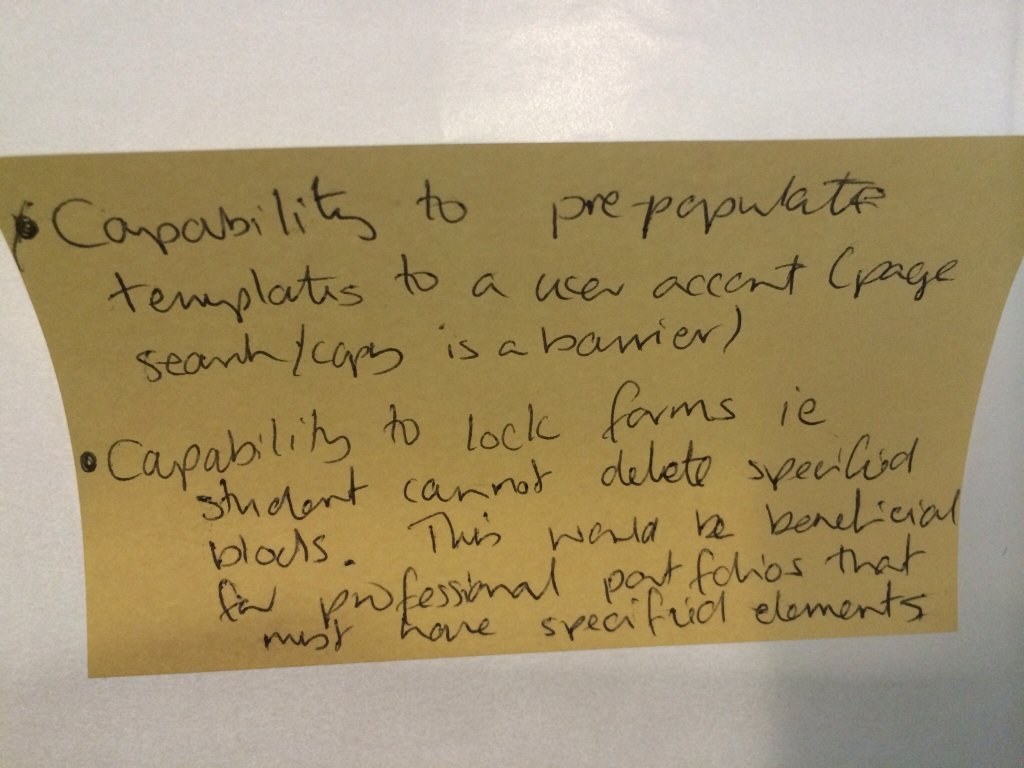 • Capability to pre-populate
templates to a user account (page
search/copy is a barrier)
• Capability to lock forms ie
student cannot delete specified
blocks. This would be beneficial
for professional portfolios that
must have specified elements